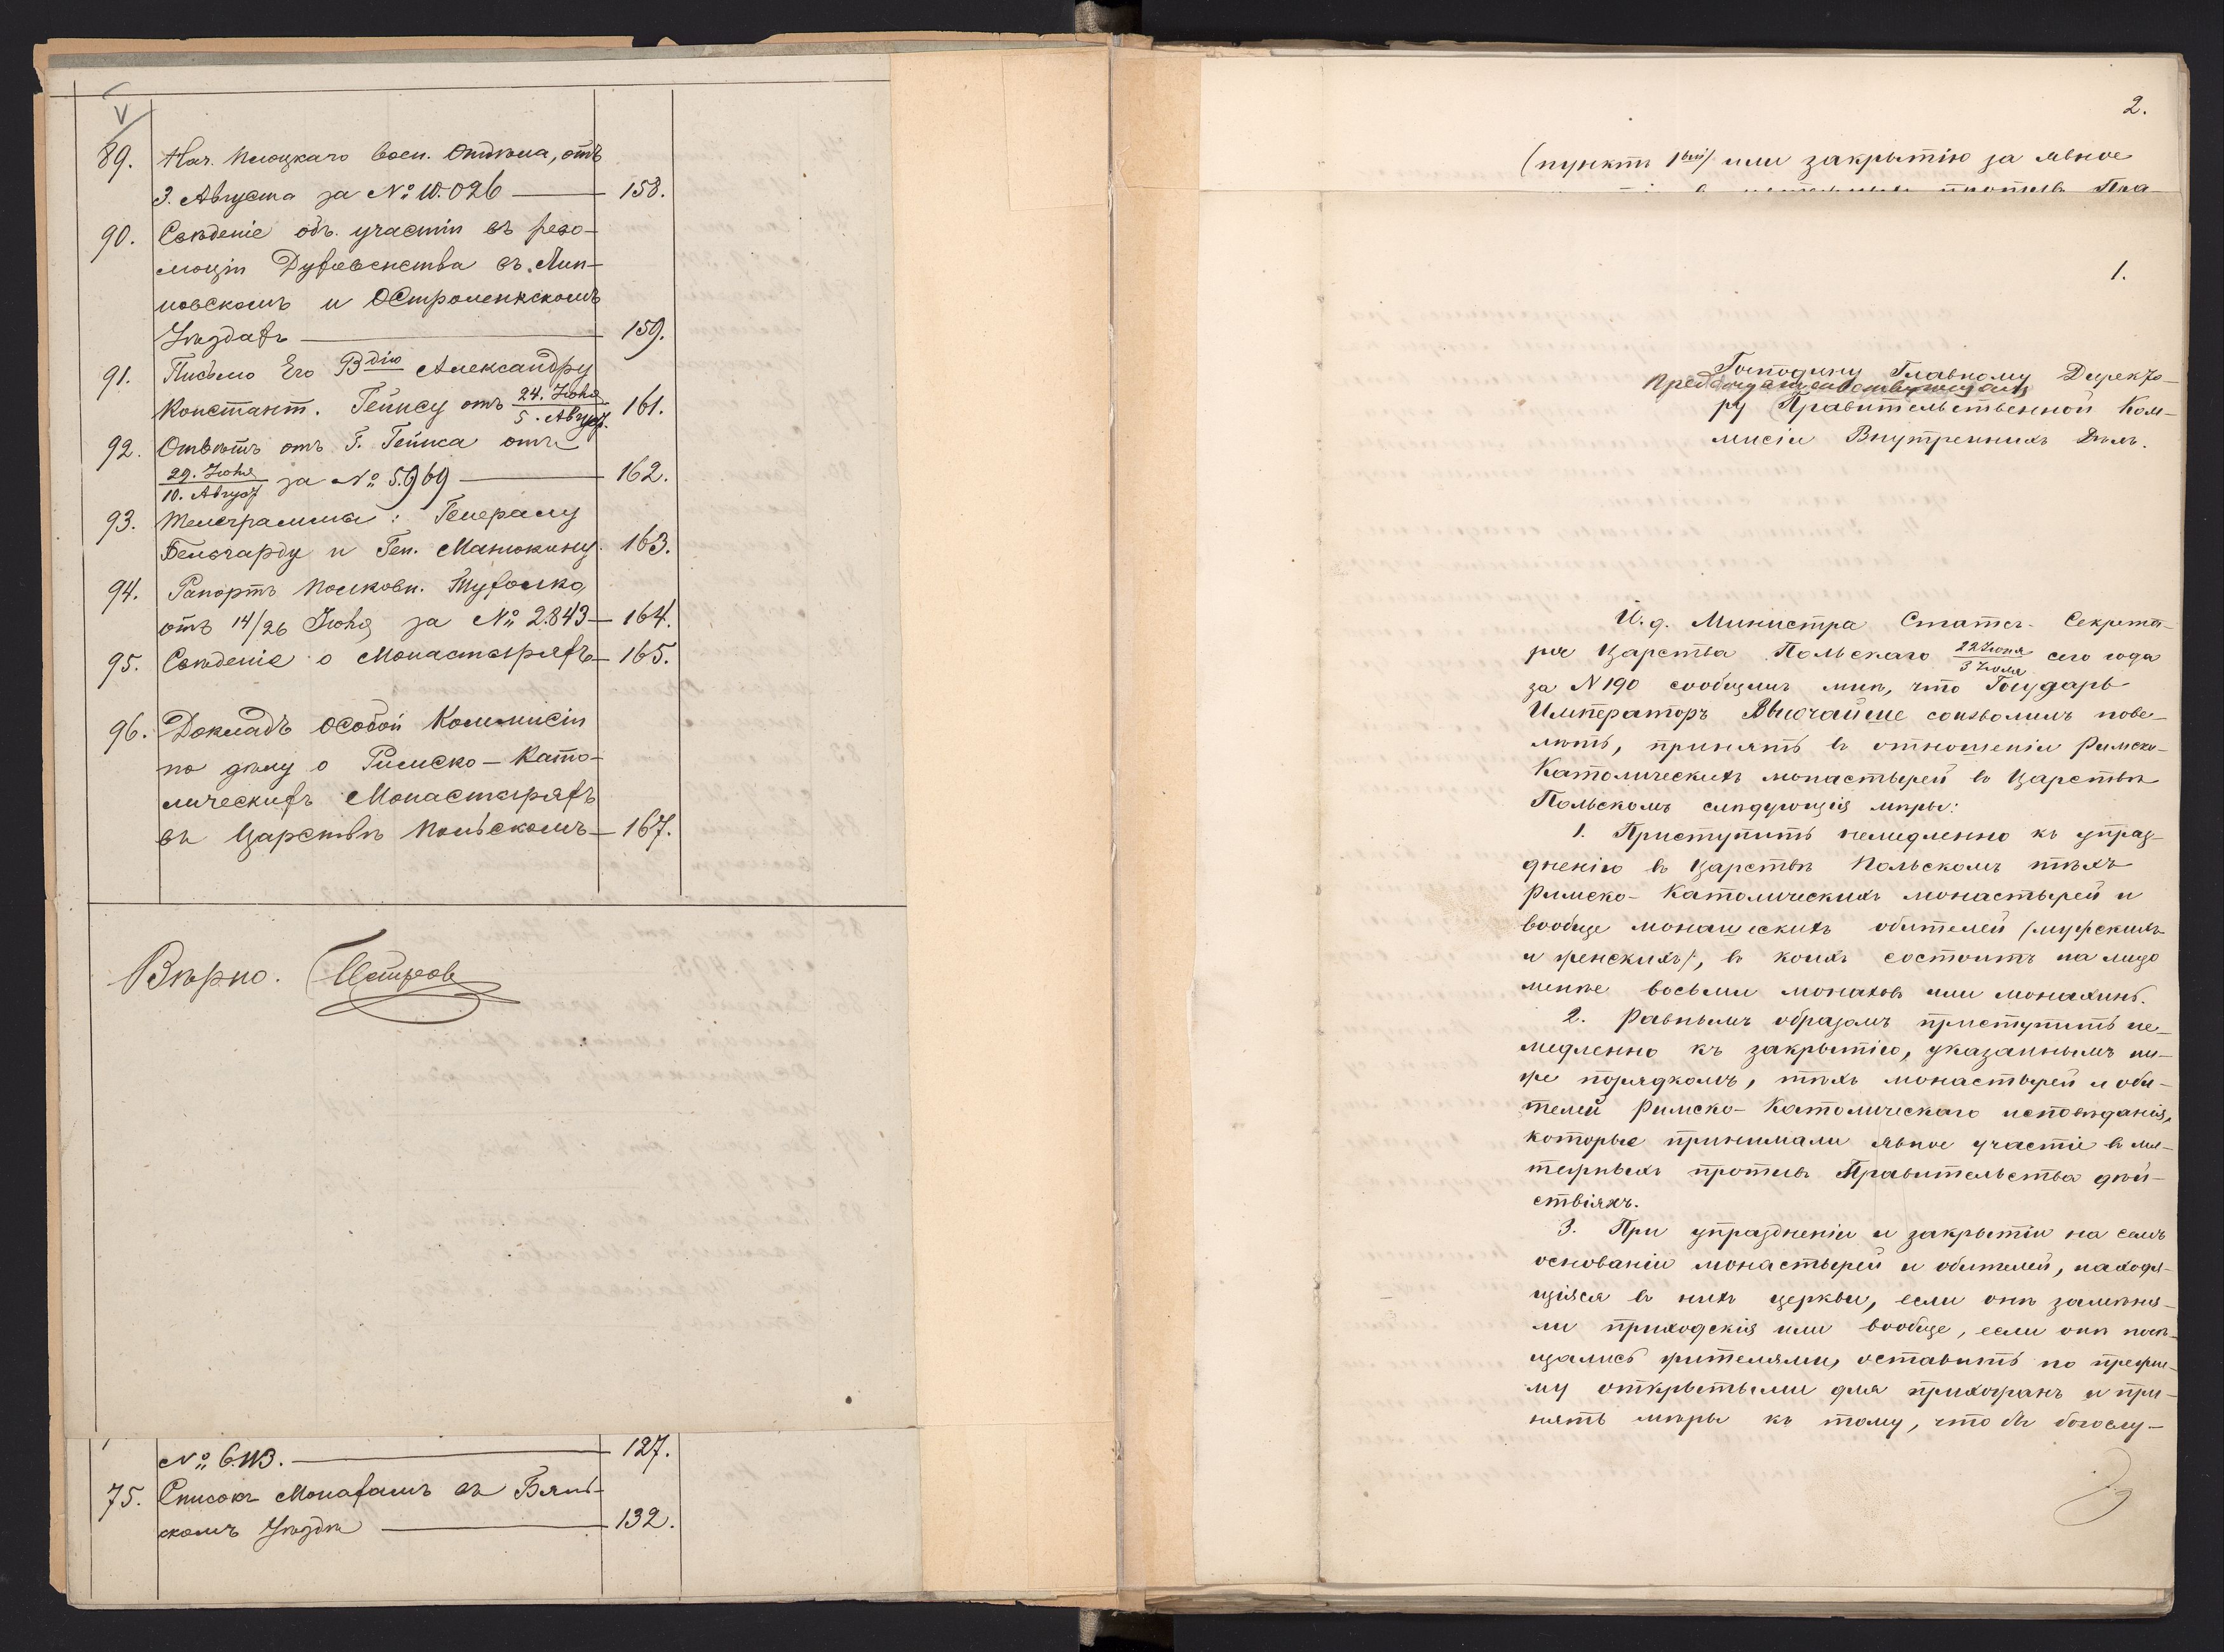 89. Нач. Плоцкаго Воен. Отдѣла, отъ
3. Августа за № 10.026 — 158.
90. Свѣденіе объ участіи въ рево-
люціи Духовенства въ Лип-
новскомъ и Остроленкскомъ
Уѣздахъ — 159.
91. Письмо Его В-дію Александру
Констант. Гейнсу отъ 24. Іюля / 5. Август. 161.
92. Отвѣтъ отъ Г. Гейнса отъ
29. Іюля / 10. Август за № 5.969 — 162.
93. Телеграммы: Генералу
Бельгарду и Ген. Манюкину. 163.
94. Рапортъ Полковн. Тухолко,
отъ 14/26 Іюля за № 2.843 — 164.
95. Свѣденіе о Монастыряхъ — 165.
96. Докладъ Особой Коммисіи
по дѣлу о Римско-Като-
лическихъ Монастыряхъ
въ Царствѣ Польскомъ — 167.
Вѣрно.
№ 6.113. — 127.
75. Списокъ Монахамъ въ Бяль-
скомъ Уѣздѣ — 132.
2.
(пунктъ 1вый) или закрытію за явное
противъ Пра-
1.
Господину Главному Директо-
ру Правительственной Ком-
мисіи Внутреннихъ Дѣлъ.
И. д. Министра Статсъ-Секрета-
ря Царства Польскаго 22 Іюня / 3 Іюля сего года
за N 190 сообщилъ мнѣ, что Государь
Императоръ Высочайше соизволилъ пове-
лѣть, принять въ отношеніи Римско-
Католическихъ монастырей въ Царствѣ
Польскомъ слѣдующія мѣры:
1. Приступить немедленно къ упраз-
дненію въ Царствѣ Польскомъ тѣхъ
Римско-Католическихъ монастырей и
вообще монашескихъ обителей (мужскихъ
и женскихъ), въ коихъ состоитъ на лицо
менѣе восьми монаховъ или монахинь.
2. Равнымъ образомъ приступить не-
медленно къ закрытію, указаннымъ ни-
же порядкомъ, тѣхъ монастырей и оби-
телей Римско-Католическаго исповѣданія,
которые принимали явное участіе въ мя-
тежныхъ противъ Правительства дѣй-
ствіяхъ.
3. При упраздненіи и закрытіи на семъ
основаніи монастырей и обителей, находя-
щіяся въ нихъ церкви, если онѣ замѣня-
ли приходскія или вообще, если онѣ посѣ-
щались жителями, оставить по прежне-
му открытыми для прихожанъ и при-
нять мѣры къ тому, что бы богослу-